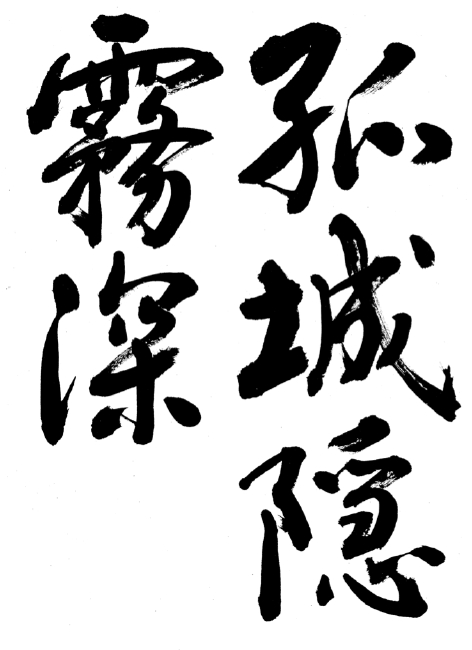 孤城隠
霧深